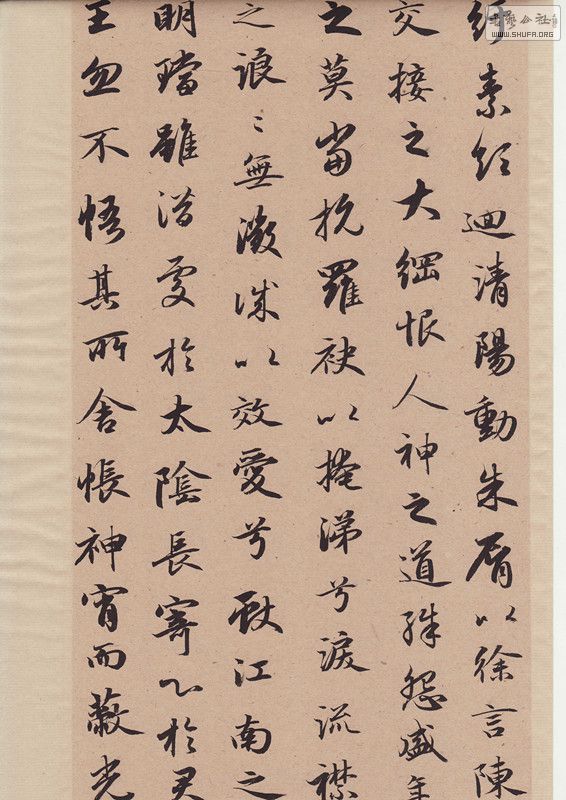 書藝公社
WWW.SHUFA.ORG
素領迴清陽動朱脣以徐言陳
交接之大綱恨人神之道殊怨盛年
之莫當抗羅袂以掩涕兮淚流襟
之浪々無微誠以效愛兮獻江南之
明璫雖潛處於太陰長寄心於君
王忽不悟其所舍悵神宵而蔽光